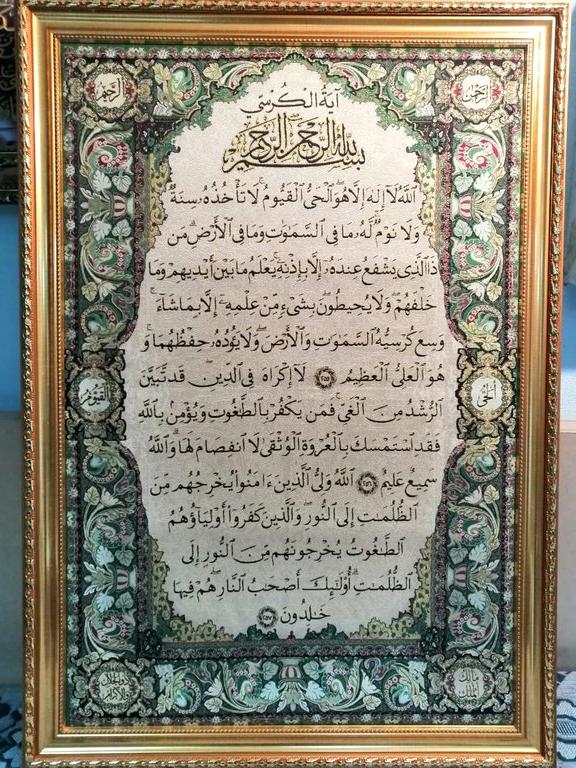 الرحمن
الرحيم
آية الكرسي
بسم الله الرحمن الرحيم
ٱللَّهُ لَآ إِلَٰهَ إِلَّا هُوَ ٱلْحَىُّ ٱلْقَيُّومُ ۚ لَا تَأْخُذُهُۥ سِنَةٌ
وَلَا نَوْمٌ ۚ لَّهُۥ مَا فِى ٱلسَّمَٰوَٰتِ وَمَا فِى ٱلْأَرْضِ ۗ مَن
ذَا ٱلَّذِى يَشْفَعُ عِندَهُۥٓ إِلَّا بِإِذْنِهِۦ ۚ يَعْلَمُ مَا بَيْنَ أَيْدِيهِمْ وَمَا
خَلْفَهُمْ ۖ وَلَا يُحِيطُونَ بِشَىْءٍ مِّنْ عِلْمِهِۦٓ إِلَّا بِمَا شَآءَ ۚ
وَسِعَ كُرْسِيُّهُ ٱلسَّمَٰوَٰتِ وَٱلْأَرْضَ ۖ وَلَا يَـُٔودُهُۥ حِفْظُهُمَا ۚ وَ
هُوَ ٱلْعَلِىُّ ٱلْعَظِيمُ ٢٥٥ لَآ إِكْرَاهَ فِى ٱلدِّينِ ۖ قَد تَّبَيَّنَ
الحي
القيوم
ٱلرُّشْدُ مِنَ ٱلْغَىِّ ۚ فَمَن يَكْفُرْ بِٱلطَّٰغُوتِ وَيُؤْمِنۢ بِٱللَّهِ
فَقَدِ ٱسْتَمْسَكَ بِٱلْعُرْوَةِ ٱلْوُثْقَىٰ لَا ٱنفِصَامَ لَهَا ۗ وَٱللَّهُ
سَمِيعٌ عَلِيمٌ ٢٥٦ ٱللَّهُ وَلِىُّ ٱلَّذِينَ ءَامَنُوا۟ يُخْرِجُهُم مِّنَ
ٱلظُّلُمَٰتِ إِلَى ٱلنُّورِ ۖ وَٱلَّذِينَ كَفَرُوٓا۟ أَوْلِيَآؤُهُمُ
ٱلطَّٰغُوتُ يُخْرِجُونَهُم مِّنَ ٱلنُّورِ إِلَى
ٱلظُّلُمَٰتِ ۗ أُو۟لَٰٓئِكَ أَصْحَٰبُ ٱلنَّارِ ۖ هُمْ فِيهَا
خَٰلِدُونَ ٢٥٧
مالك الملك
ذو الجلال والإكرام